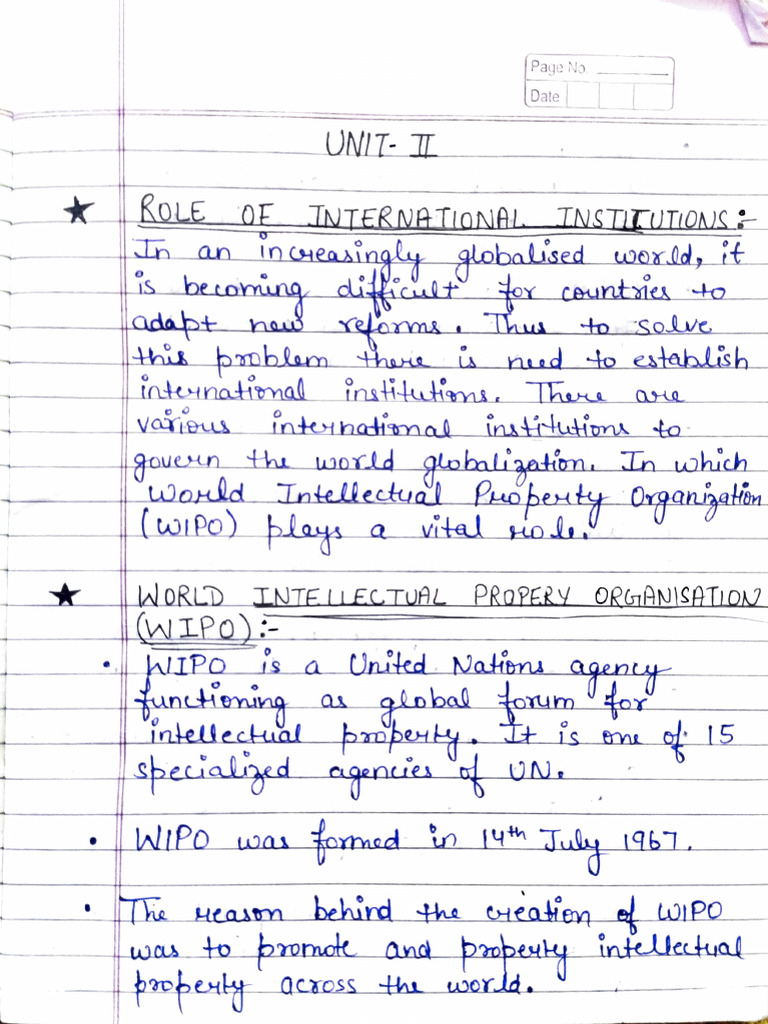 Page No.
Date
UNIT- II
★ ROLE OF INTERNATIONAL INSTITUTIONS:-
In an increasingly globalised world, it
is becoming difficult for countries to
adapt new reforms. Thus to solve
this problem there is need to establish
international institutions. There are
various international institutions to
govern the world globalization. In which
World Intellectual Property Organization
(WIPO) plays a vital role.
★ WORLD INTELLECTUAL PROPERY ORGANISATION
(WIPO):-
• WIPO is a United Nations agency
functioning as global forum for
intellectual property. It is one of 15
specialized agencies of UN.
• WIPO was formed in 14th July 1967.
• The reason behind the creation of WIPO
was to promote and property intellectual
property across the world.